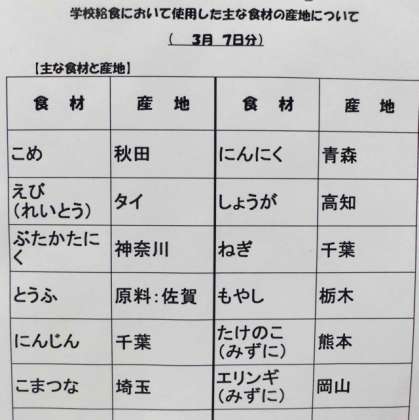 学校給食において使用した主な食材の産地について
( 3月 7日分)
【主な食材と産地】
食 材 産 地 食 材 産 地
こめ 秋田 にんにく 青森
えび
(れいとう) タイ しょうが 高知
ぶたかたに
く 神奈川 ねぎ 千葉
とうふ 原料:佐賀 もやし 栃木
にんじん 千葉 たけのこ
(みずに) 熊本
こまつな 埼玉 エリンギ
(みずに) 岡山